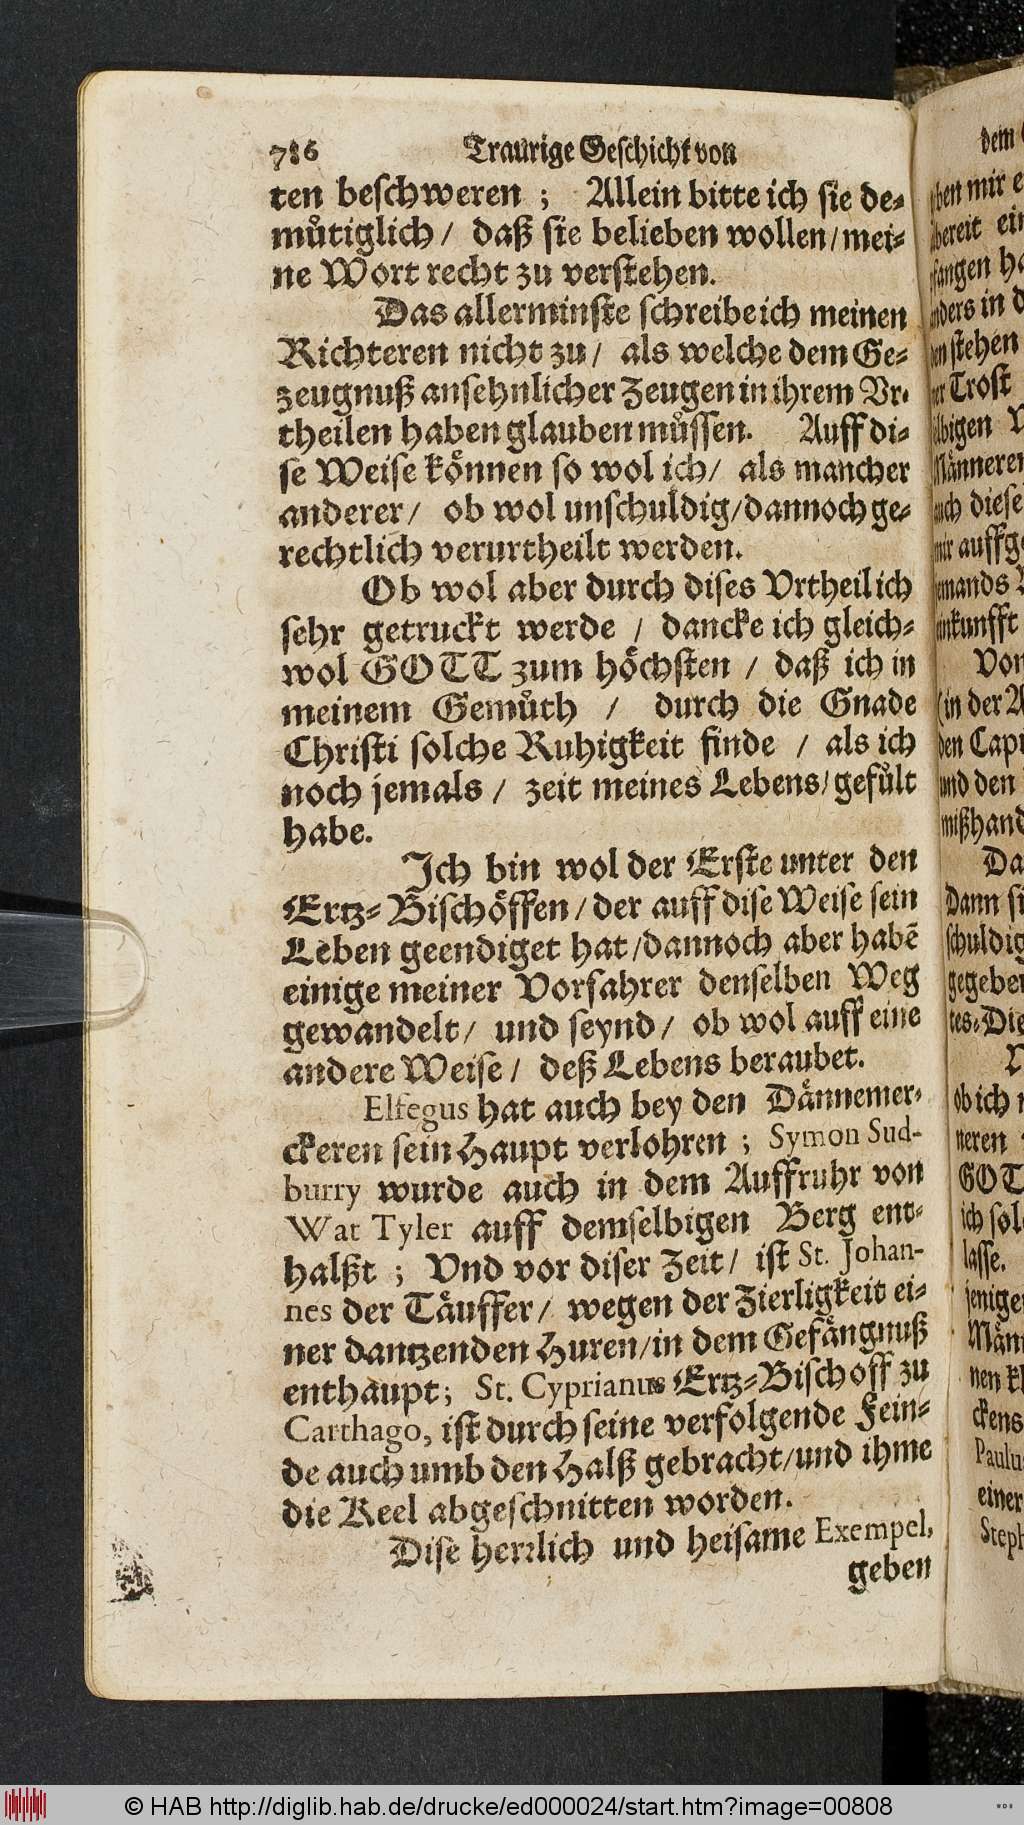 786 Traurige Geschicht von
ten beschweren ; Allein bitte ich sie de⸗
muͤtiglich / daß sie belieben wollen / mei⸗
ne Wort recht zu verstehen.
Das allerminste schreibe ich meinen
Richteren nicht zu / als welche dem Ge⸗
zeugnuß ansehnlicher Zeugen in ihrem Vr⸗
theilen haben glauben muͤssen. Auff di⸗
se Weise koͤnnen so wol ich / als mancher
anderer / ob wol unschuldig / dannoch ge⸗
rechtlich verurtheilt werden.
Ob wol aber durch dises Vrtheil ich
sehr getruckt werde / dancke ich gleich⸗
wol GOTT zum hoͤchsten / daß ich in
meinem Gemuͤth / durch die Gnade
Christi solche Ruhigkeit finde / als ich
noch jemals / zeit meines Lebens / gefuͤlt
habe.
Ich bin wol der Erste unter den
Ertz⸗Bischoͤffen / der auff dise Weise sein
Leben geendiget hat / dannoch aber habē
einige meiner Vorfahrer denselben Weg
gewandelt / und seynd / ob wol auff eine
andere Weise / deß Lebens beraubet.
Elfegus hat auch bey den Daͤnnemer⸗
ckeren sein Haupt verlohren ; Symon Sud-
burry wurde auch in dem Auffruhr von
Wat Tyler auff demselbigen Berg ent⸗
halßt ; Vnd vor diser Zeit / ist St. Johan-
nes der Taͤuffer / wegen der Zierligkeit ei⸗
ner dantzenden Huren / in dem Gefaͤngnuß
enthaupt ; St. Cyprianus Ertz⸗Bischoff zu
Carthago, ist durch seine verfolgende Fein⸗
de auch umb den Halß gebracht / und ihme
die Keel abgeschnitten worden.
Dise herrlich und heisame Exempel,
geben
dem
ben mir e
bereit ein
fangen ha
nders in d
en stehen
er Trost
lbigen V
Maͤnneren
auch diese
mir auffge
jemands
einkunfft
Von
(in der A
den Capi
und den
mißhand
Da
Dann si
schuldig
gegeben
tes⸗Die
V
ob ich n
neren
GOT
ich sol
lasse.
jenige
Maͤn
nen kl
ckens
Paulu
einer
Steph
© HAB http://diglib.hab.de/drucke/ed000024/start.htm?image=00808